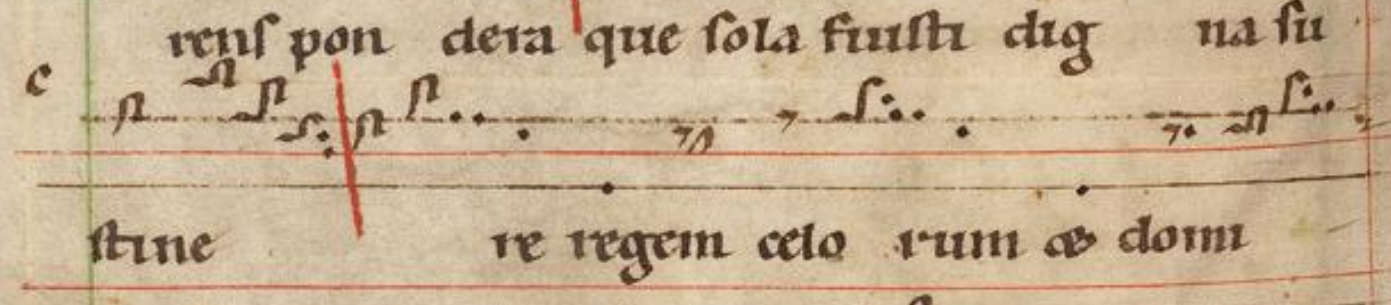 renſ pon dera que ſola fuiſti dig na ſu
c
ſtine re regem celo rum & domi